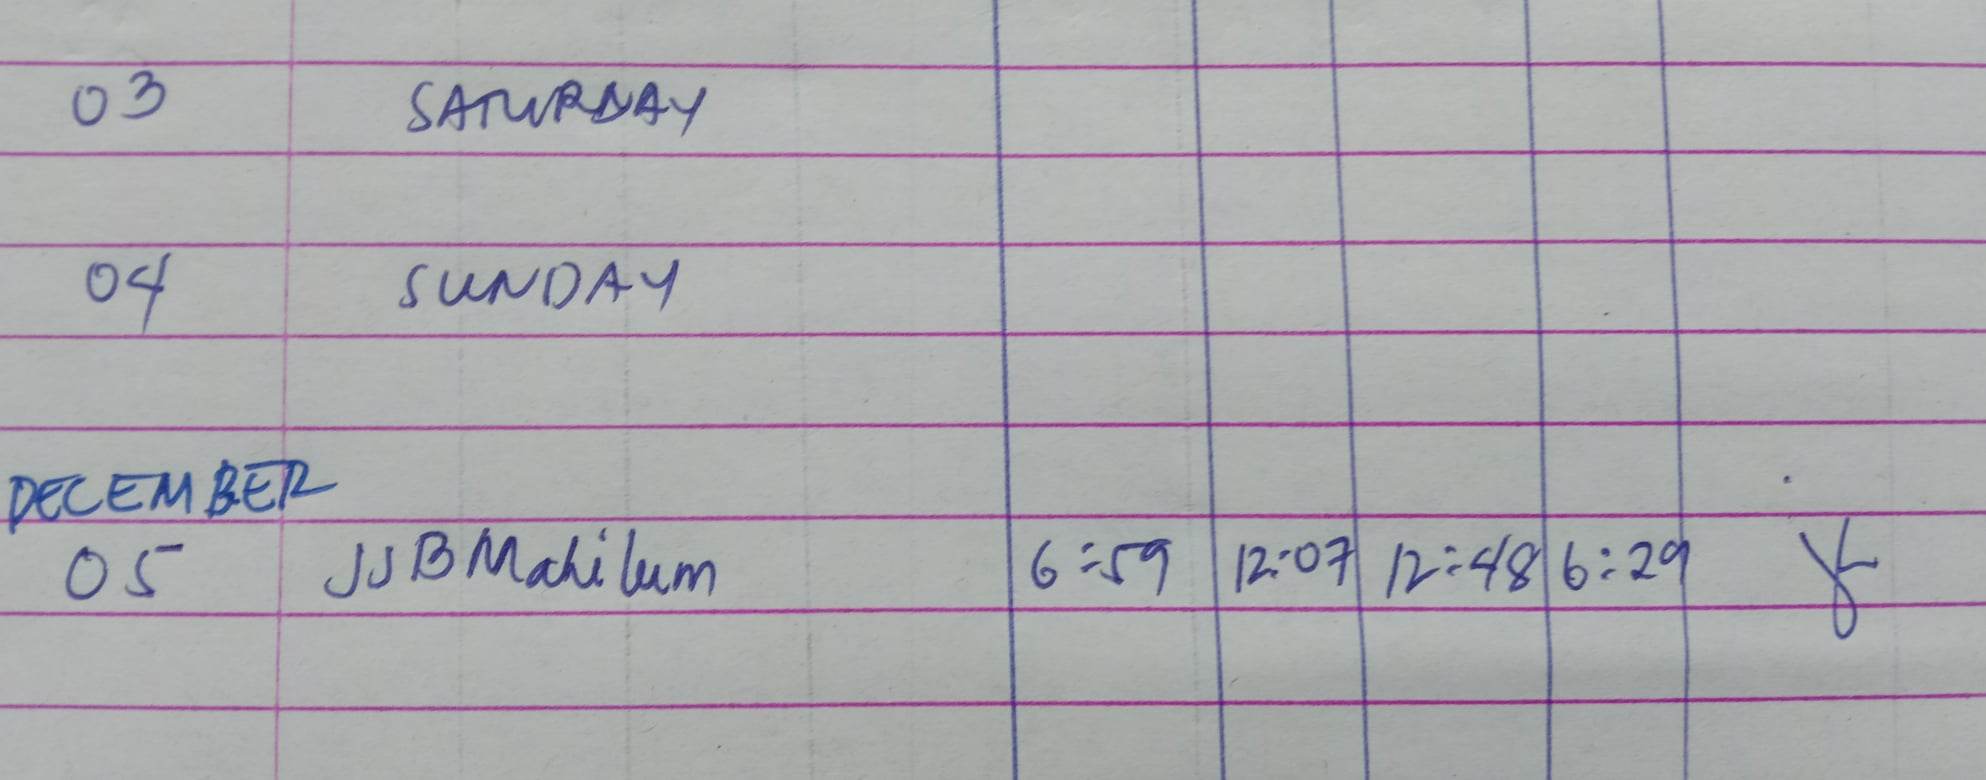 03 SATURDAY
04 SUNDAY
DECEMBER
05 JJB Mahilum 6:59 12:07 12:48 6:29